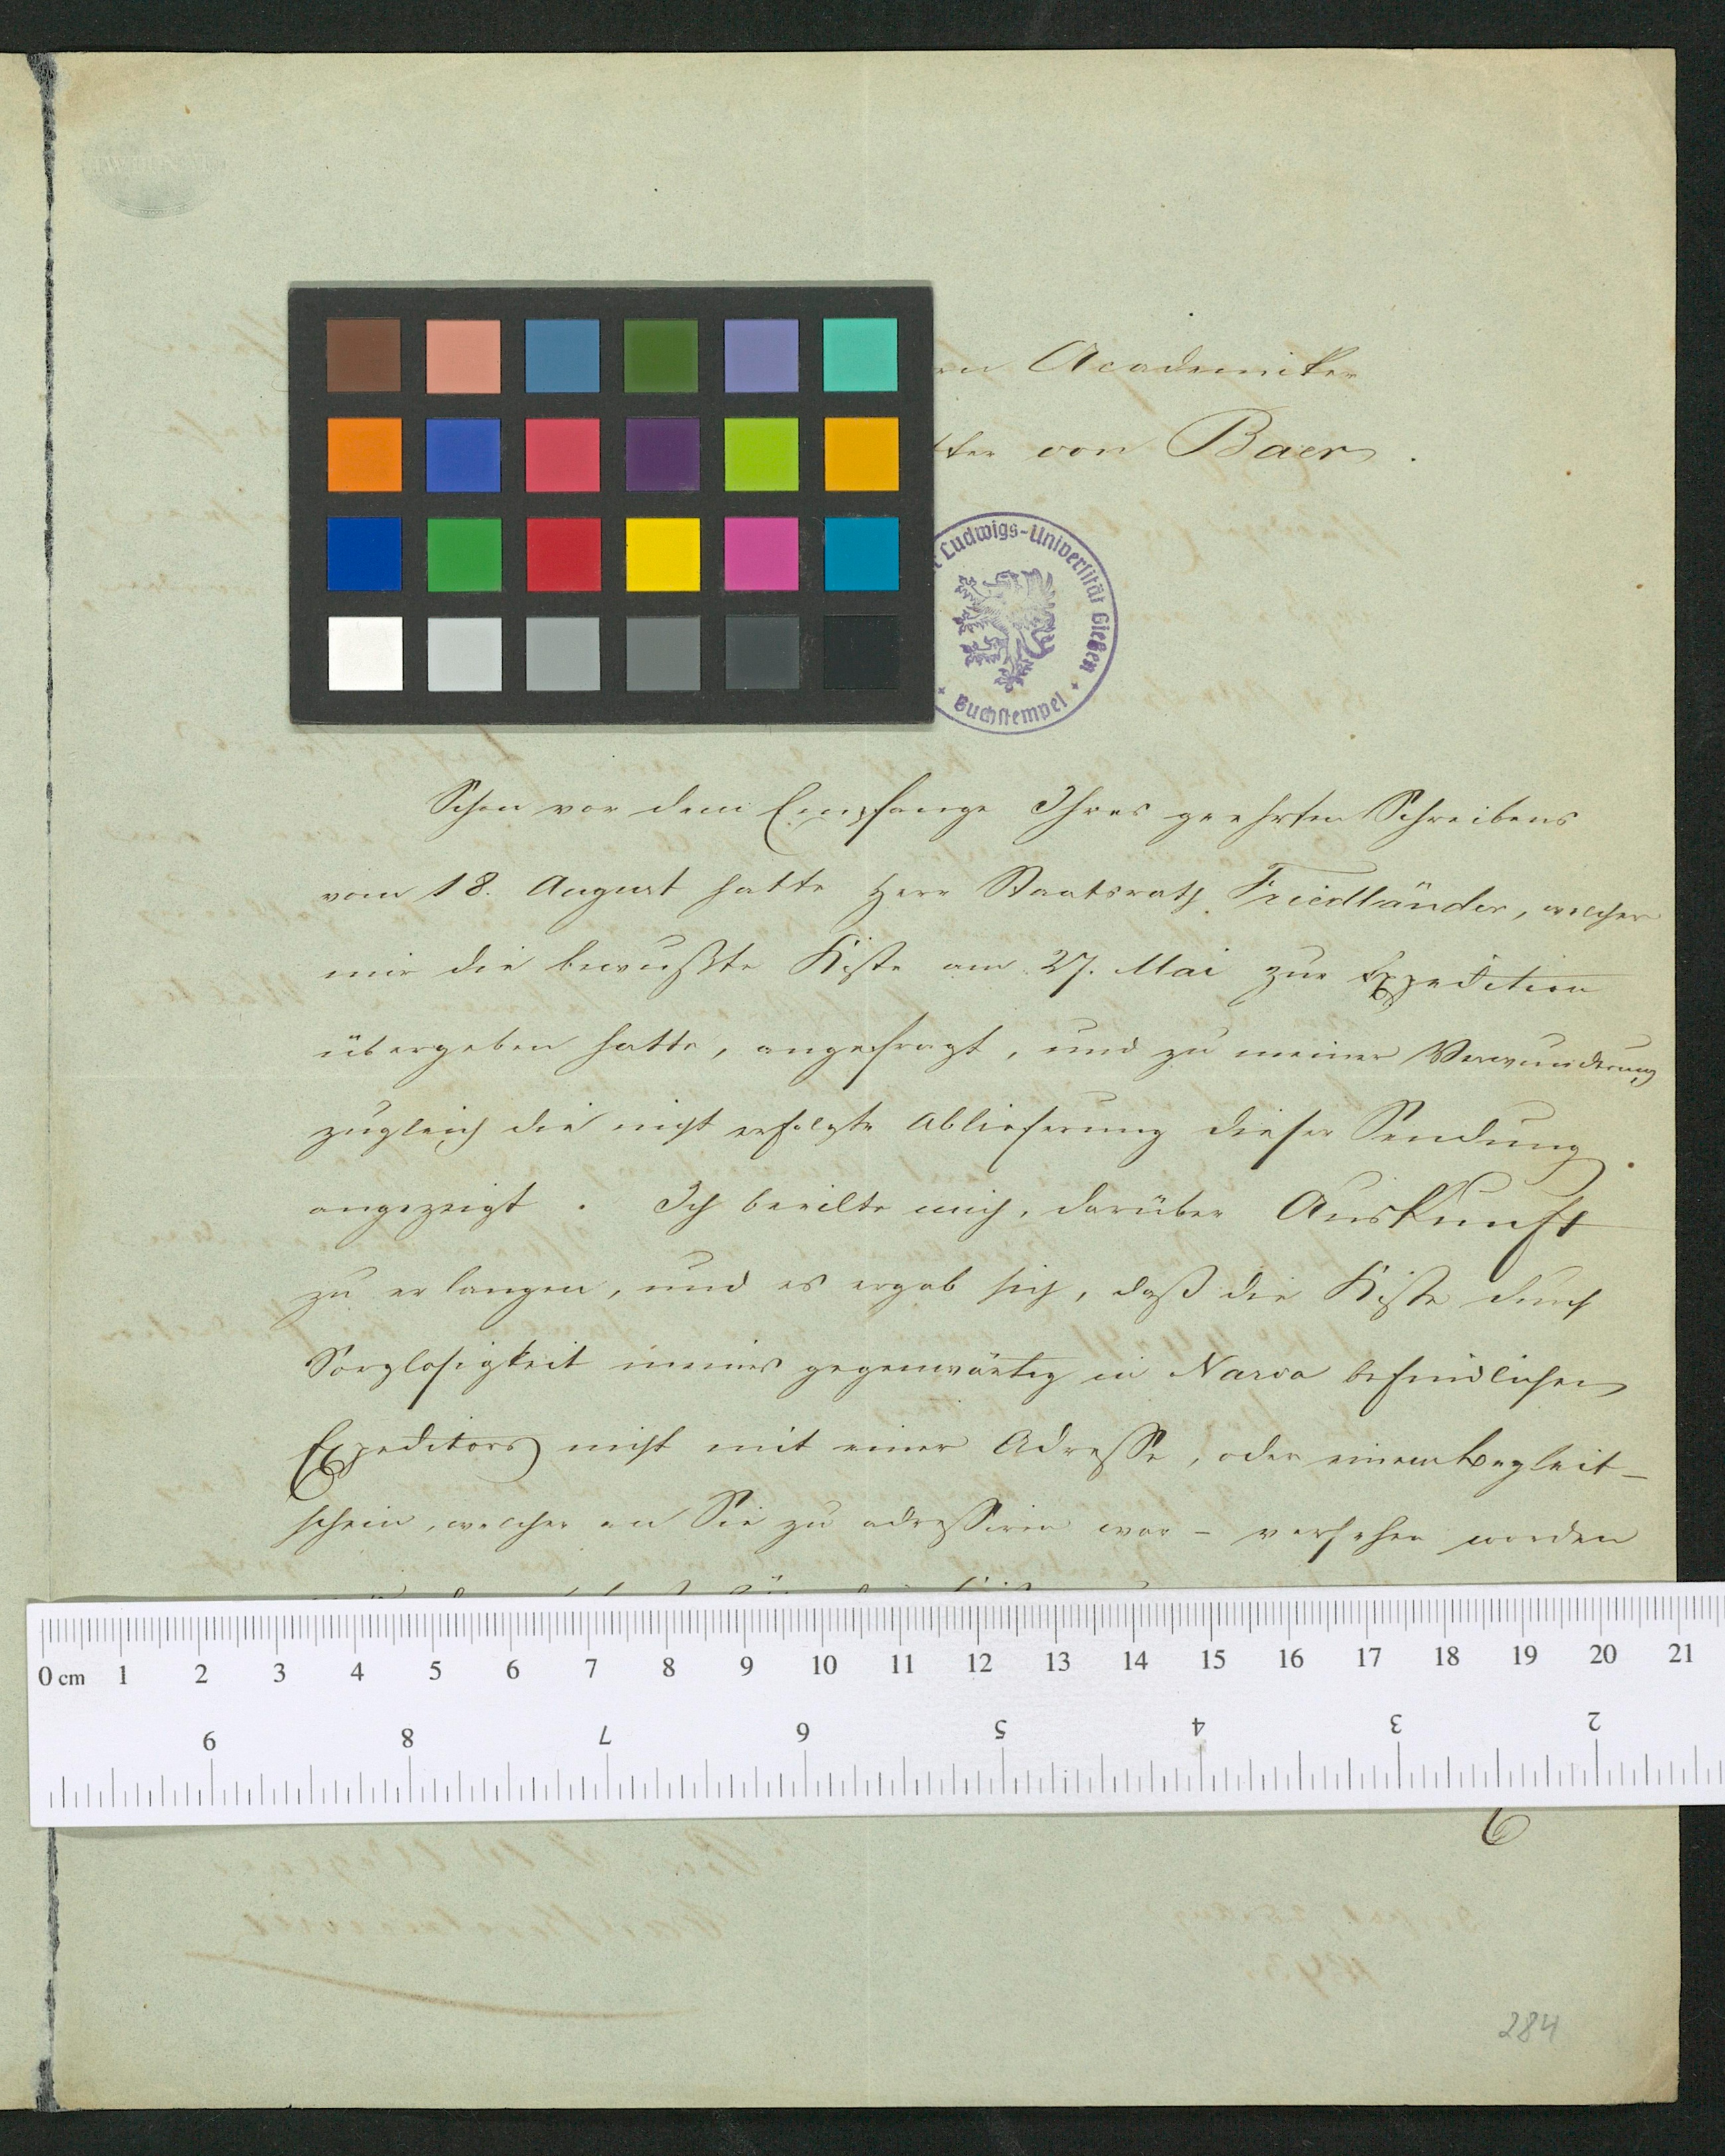 en Academiker
tter von Baer.
Ludwigs-Universität Gießen
Buchstempel
Schon vor dem Empfange Ihres geehrten Schreibens
vom 18. August hatte Herr Staatsrath Friedländer, welcher
mir die bewußte Kiste am 27. Mai zur Expedition
übergeben hatte, angefragt, und zu meiner Verwunderung
zugleich die nicht erfolgte Ablieferung dieser Sendung
angezeigt. Ich beeilte mich, darüber Auskunft
zu erlangen, und es ergab sich, daß die Kiste durch
Sorglosigkeit meines gegenwärtig in Narva befindlichen
Expeditors nicht mit einer Adresse, oder einem Begleit-
schein, welcher an Sie zu adressiren war – versehen worden
0 cm 1 2 3 4 5 6 7 8 9 10 11 12 13 14 15 16 17 18 19 20 21
9 8 7 6 5 4 3 2
284